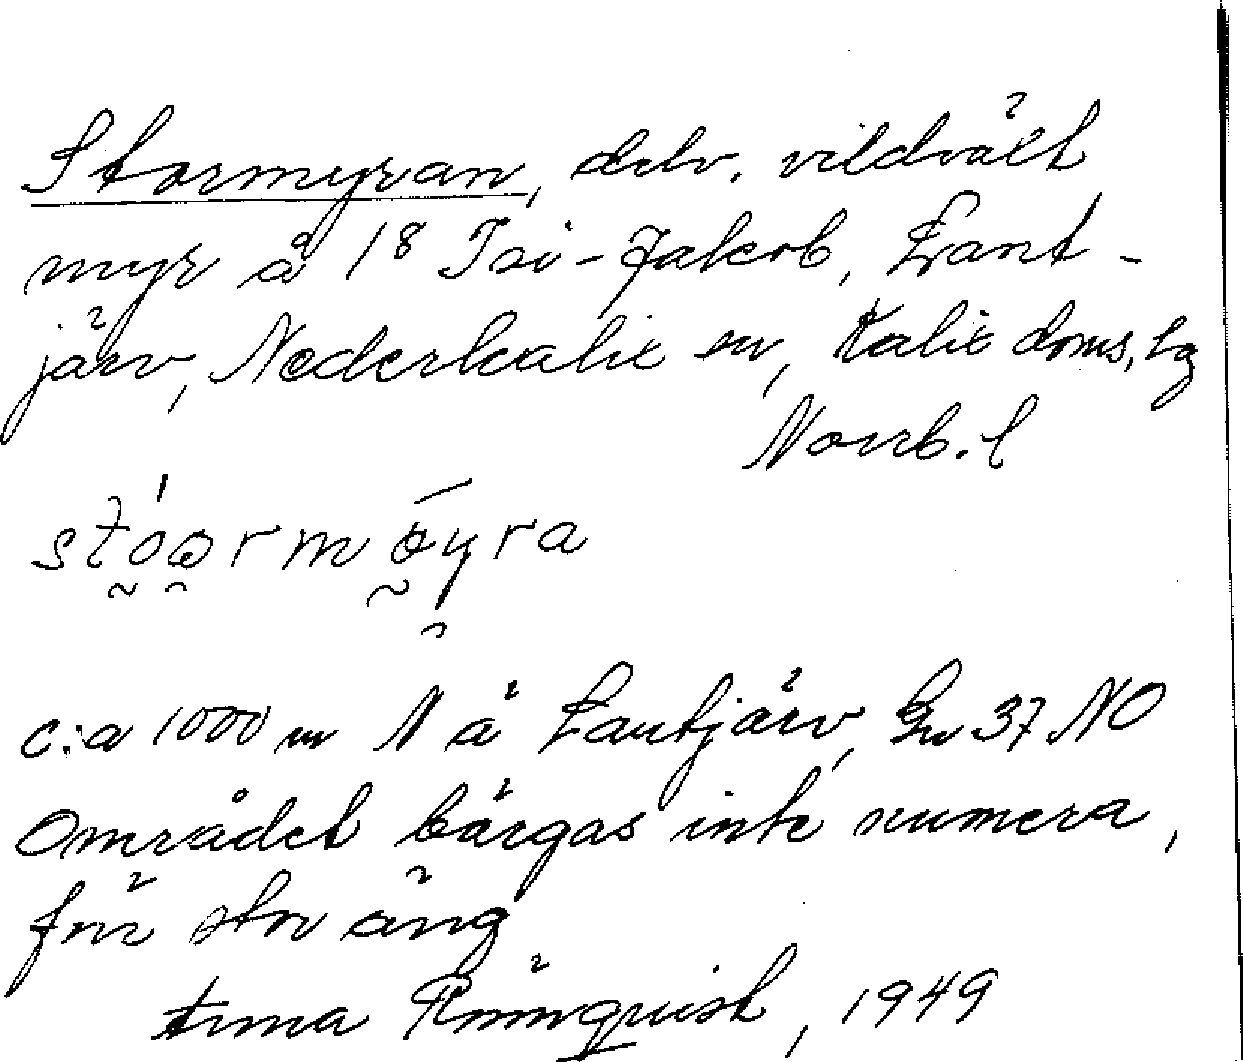 Stormyran, delv. vildväxt
myr å 1⁸ Isi-Jakob, Lant-
järv, Nederkalix sn, Kalix doms. lg
Norrb. l
stóormøyra
c:a 1000 m N å Lantjärv, Gn 37 NO
Området bärgas inte numera,
förr stor äng
Anna Rönnquist, 1949